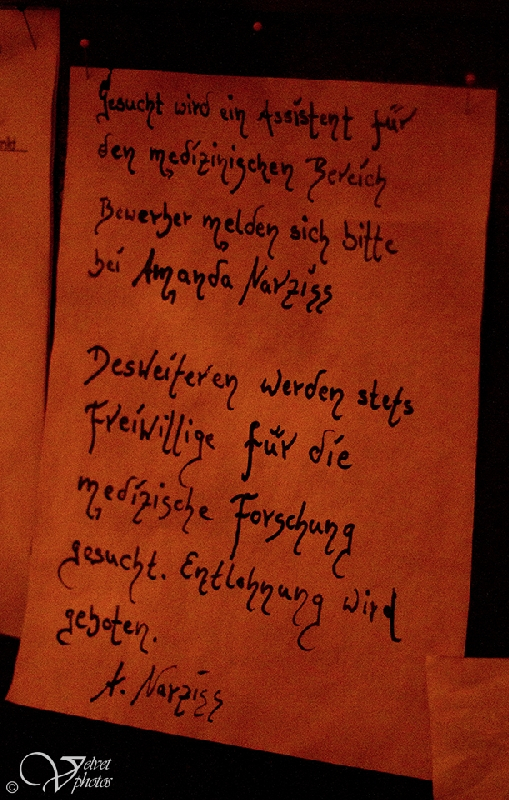 Gesucht wird ein Assistent für
den medizinischen Bereich
Bewerber melden sich bitte
bei Amanda Narziss
Desweiteren werden stets
Freiwillige für die
medizische Forschung
gesucht. Entlohnung wird
geboten.
A. Narziss
© Velvet
photos